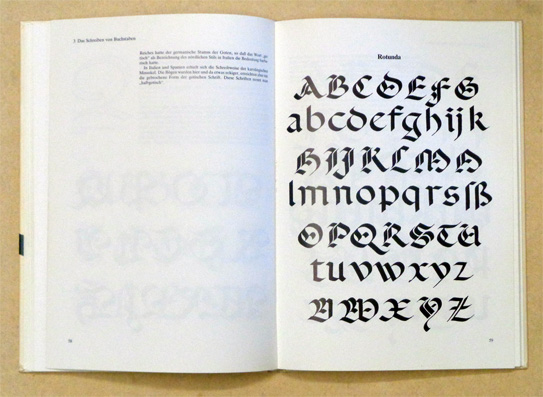 3 Das Schreiben von Buchstaben
Reiches hatte der germanische Stamm der Goten, so daß das Wort „go-
tisch“ als Bezeichnung für nördlichen Stils in Italien die Bedeutung barba-
risch hatte.
In Italien und Spanien erhielt sich die Schreibweise der karolingischen
Minuskel. Die Bögen wurden hier und da etwas eckiger, erreichten aber nie
die gebrochene Form der gotischen Schrift. Diese Schriften nennt man
„halbgotisch“.
Rotunda
ABCDEFG
abcdefghijk
HIJKLMN
lmnopqrsſß
OPQRSTU
tuvwxyz
VWXYZ